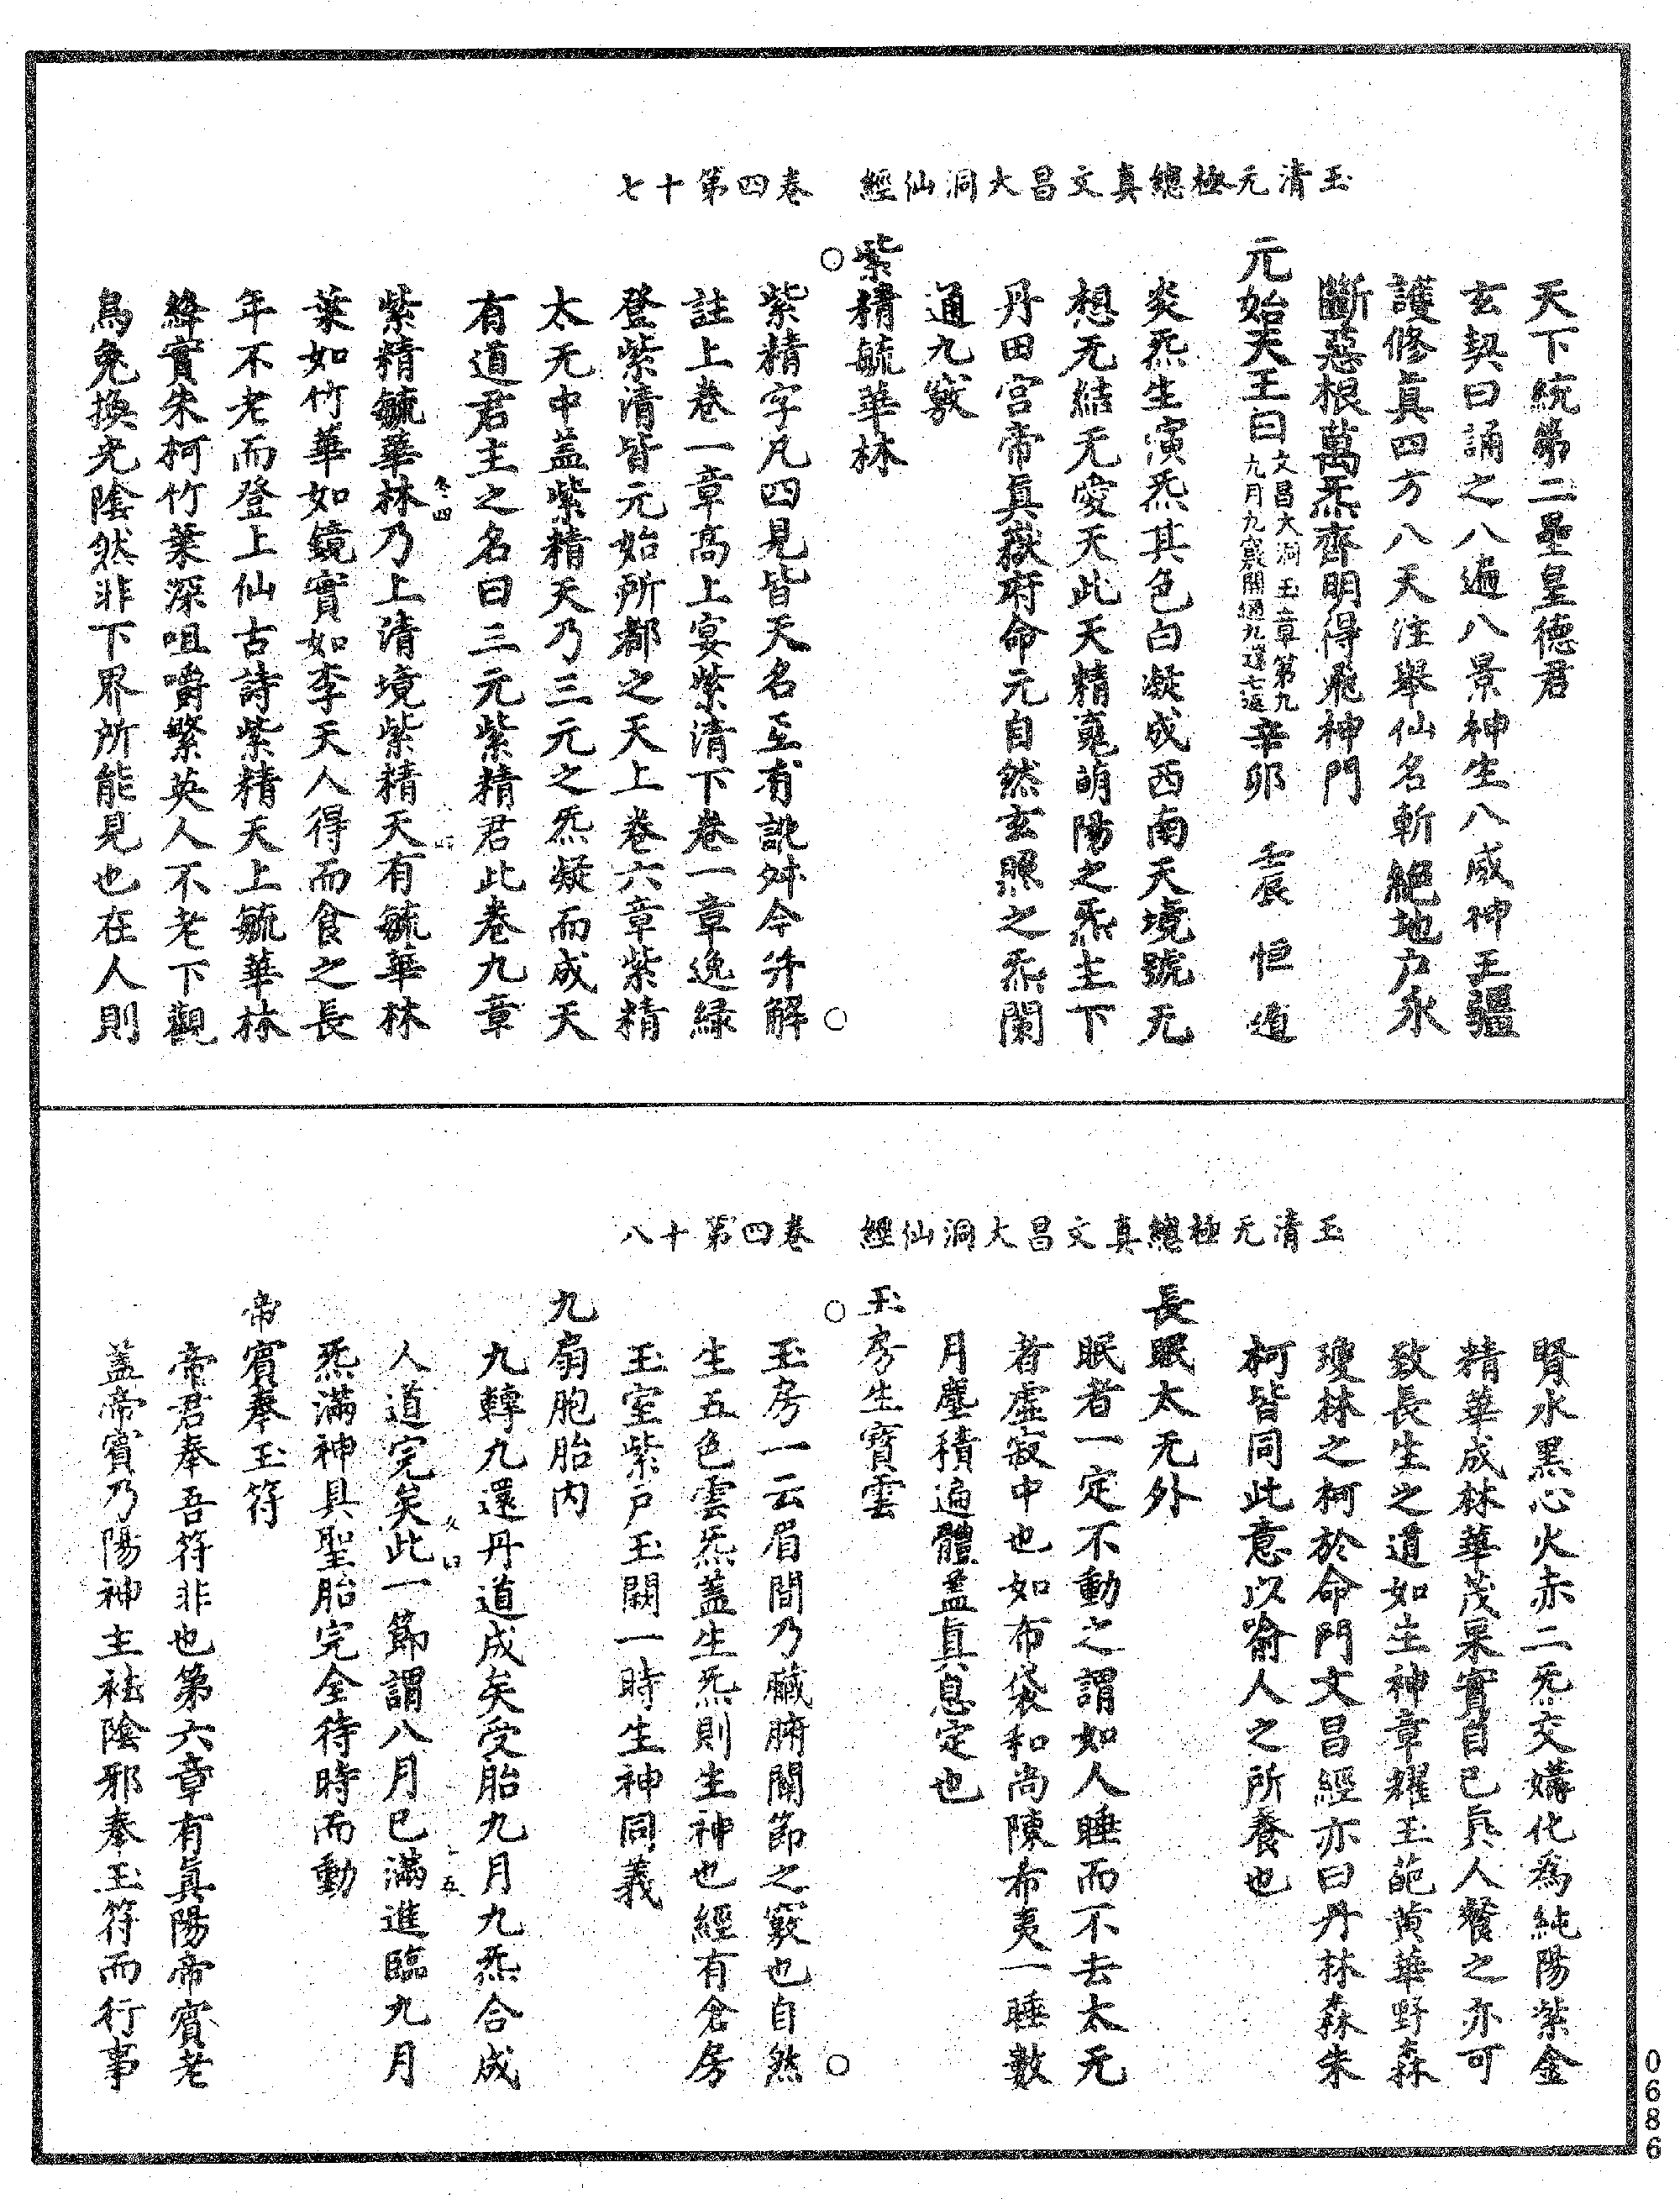 玉清元極總真文昌大洞仙經　卷四第十七
天下統第二星皇德君
玄契曰誦之八遍八景神生八威神王疆
護修眞四方八天注舉仙名斬絕地户永
斷惡根萬炁齊明得飛神門
元始天王曰文昌大洞玉章第九九月九竅開通九道七返辛卯　壬辰　恒　道
炎炁生演炁其色白凝成西南天境號无
想无結无愛天此天精嵬萌陽之炁主下
丹田宫帝眞嶽府命元自然玄照之炁関
通九竅
紫精毓華林
紫精字凡四見皆天名互有訛舛今并解
註上卷一章高上宴紫清下卷一章逸緑
登紫清皆元始所都之天上卷六章紫精
太无中盖紫精天乃三元之炁凝而成天
有道君主之名曰三元紫精君此卷九章
紫精毓華林乃上清境紫精天有毓華林
葉如竹華如鏡實如李天人得而食之長
年不老而登上仙古詩紫精天上毓華林
絳實朱柯竹葉深咀嚼繁英人不老下觀
烏兔換光陰然非下界所能見也在人則
玉清元極總真文昌大洞仙經　卷四第十八
腎水黑心火赤二炁交媾化為純陽紫金
精華成林華茂果實自己眞人餐之亦可
致長生之道如生神章耀玉葩黄華野森
瓊林之柯於命門文昌經亦曰丹林森朱
柯皆同此意以喻人之所養也
長眠太无外
眠者一定不動之謂如人睡而不去太无
者虚寂中也如布袋和尚陳希夷一睡數
月塵積遍體盖眞息定也
玉房生寳雲
玉房一云眉間乃臟腑關節之竅也自然
生五色雲炁盖生炁則生神也經有倉房
玉室紫戸玉闕一時生神同義
九扇胞胎内
九轉九還丹道成矣受胎九月九炁合成
人道完矣此一節謂八月已滿進臨九月
炁滿神具聖胎完全待時而動
帝賓奉玉符
帝君奉吾符非也第六章有眞陽帝賓老
盖帝賓乃陽神主祛陰邪奉玉符而行事
0686